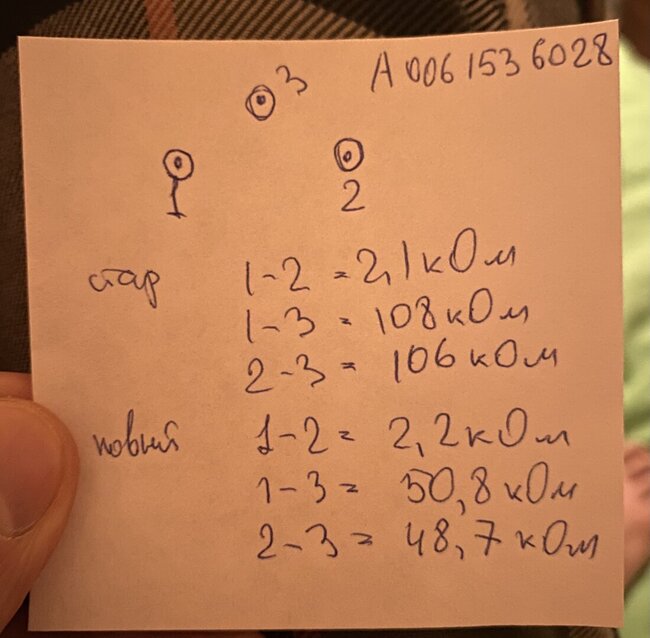 А 006 153 6028
3
1
2
стар
1-2 = 2,1 кОм
1-3 = 108 кОм
2-3 = 106 кОм
новый
1-2 = 2,2 кОм
1-3 = 50,8 кОм
2-3 = 48,7 кОм